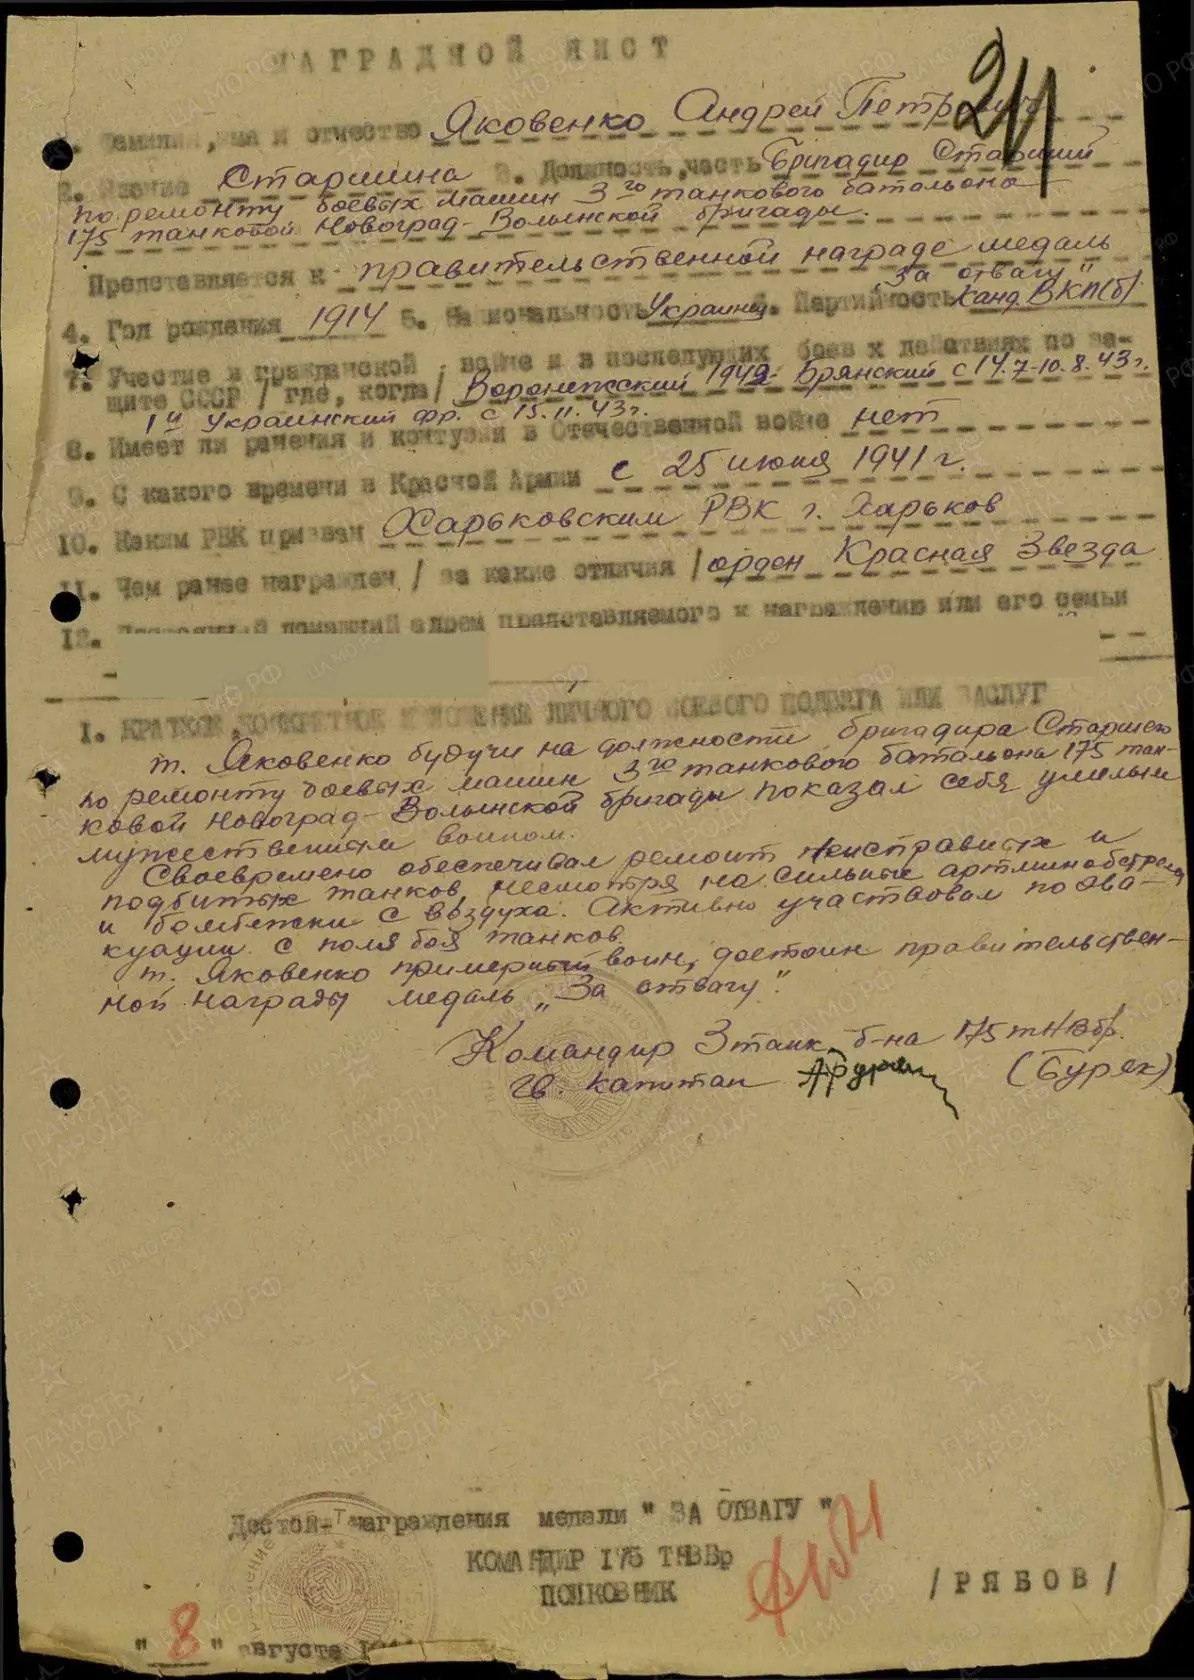 НАГРАДНОЙ ЛИСТ
211
1. Фамилия, имя и отчество Яковенко Андрей Петрович
2. Звание Старшина 3. Должность, часть Бригадир Старший
по ремонту боевых машин 3го танкового батальона
175 танковой Новоград-Волынской бригады.
Представляется к правительственной награде медаль
"За отвагу"
4. Год рождения 1914 5. Национальность Украинец 6. Партийность Канд. ВКП(б)
7. Участие в гражданской войне и в последующих боевых действиях по за-
щите СССР / где, когда/ Воронежский 1942 Брянский с 14.7-10.8.43г.
1й Украинский фр. с 15.11.43г.
8. Имеет ли ранения и контузии в Отечественной войне нет
9. С какого времени в Красной Армии с 25 июня 1941 г.
10. Каким РВК призван Харьковским РВК г. Харьков
11. Чем ранее награжден / за какие отличия / орден Красная Звезда
12. Постоянный домашний адрес представляемого к награждению или его семьи
I. КРАТКОЕ, КОНКРЕТНОЕ ИЗЛОЖЕНИЕ ЛИЧНОГО БОЕВОГО ПОДВИГА ИЛИ ЗАСЛУГ
т. Яковенко будучи на должности бригадира Старшего
по ремонту боевых машин 3го танкового батальона 175 тан-
ковой Новоград-Волынской бригады показал себя умелым
мужественным воином.
Своевремено обеспечивал ремонт неисправных и
подбитых танков, несмотря на сильные артминобстрелы
и бомбежки с воздуха. Активно участвовал по эва-
куации с поля боя танков.
т. Яковенко примерный воин, достоин правительствен-
ной награды медаль "За отвагу".
Командир 3 танк. б-на 175 тНВбр.
гв. капитан (Буряк)
Достоин награждения медали "ЗА ОТВАГУ"
КОМАНДИР 175 ТНВБр
ПОЛКОВНИК
/РЯБОВ/
"8" августа